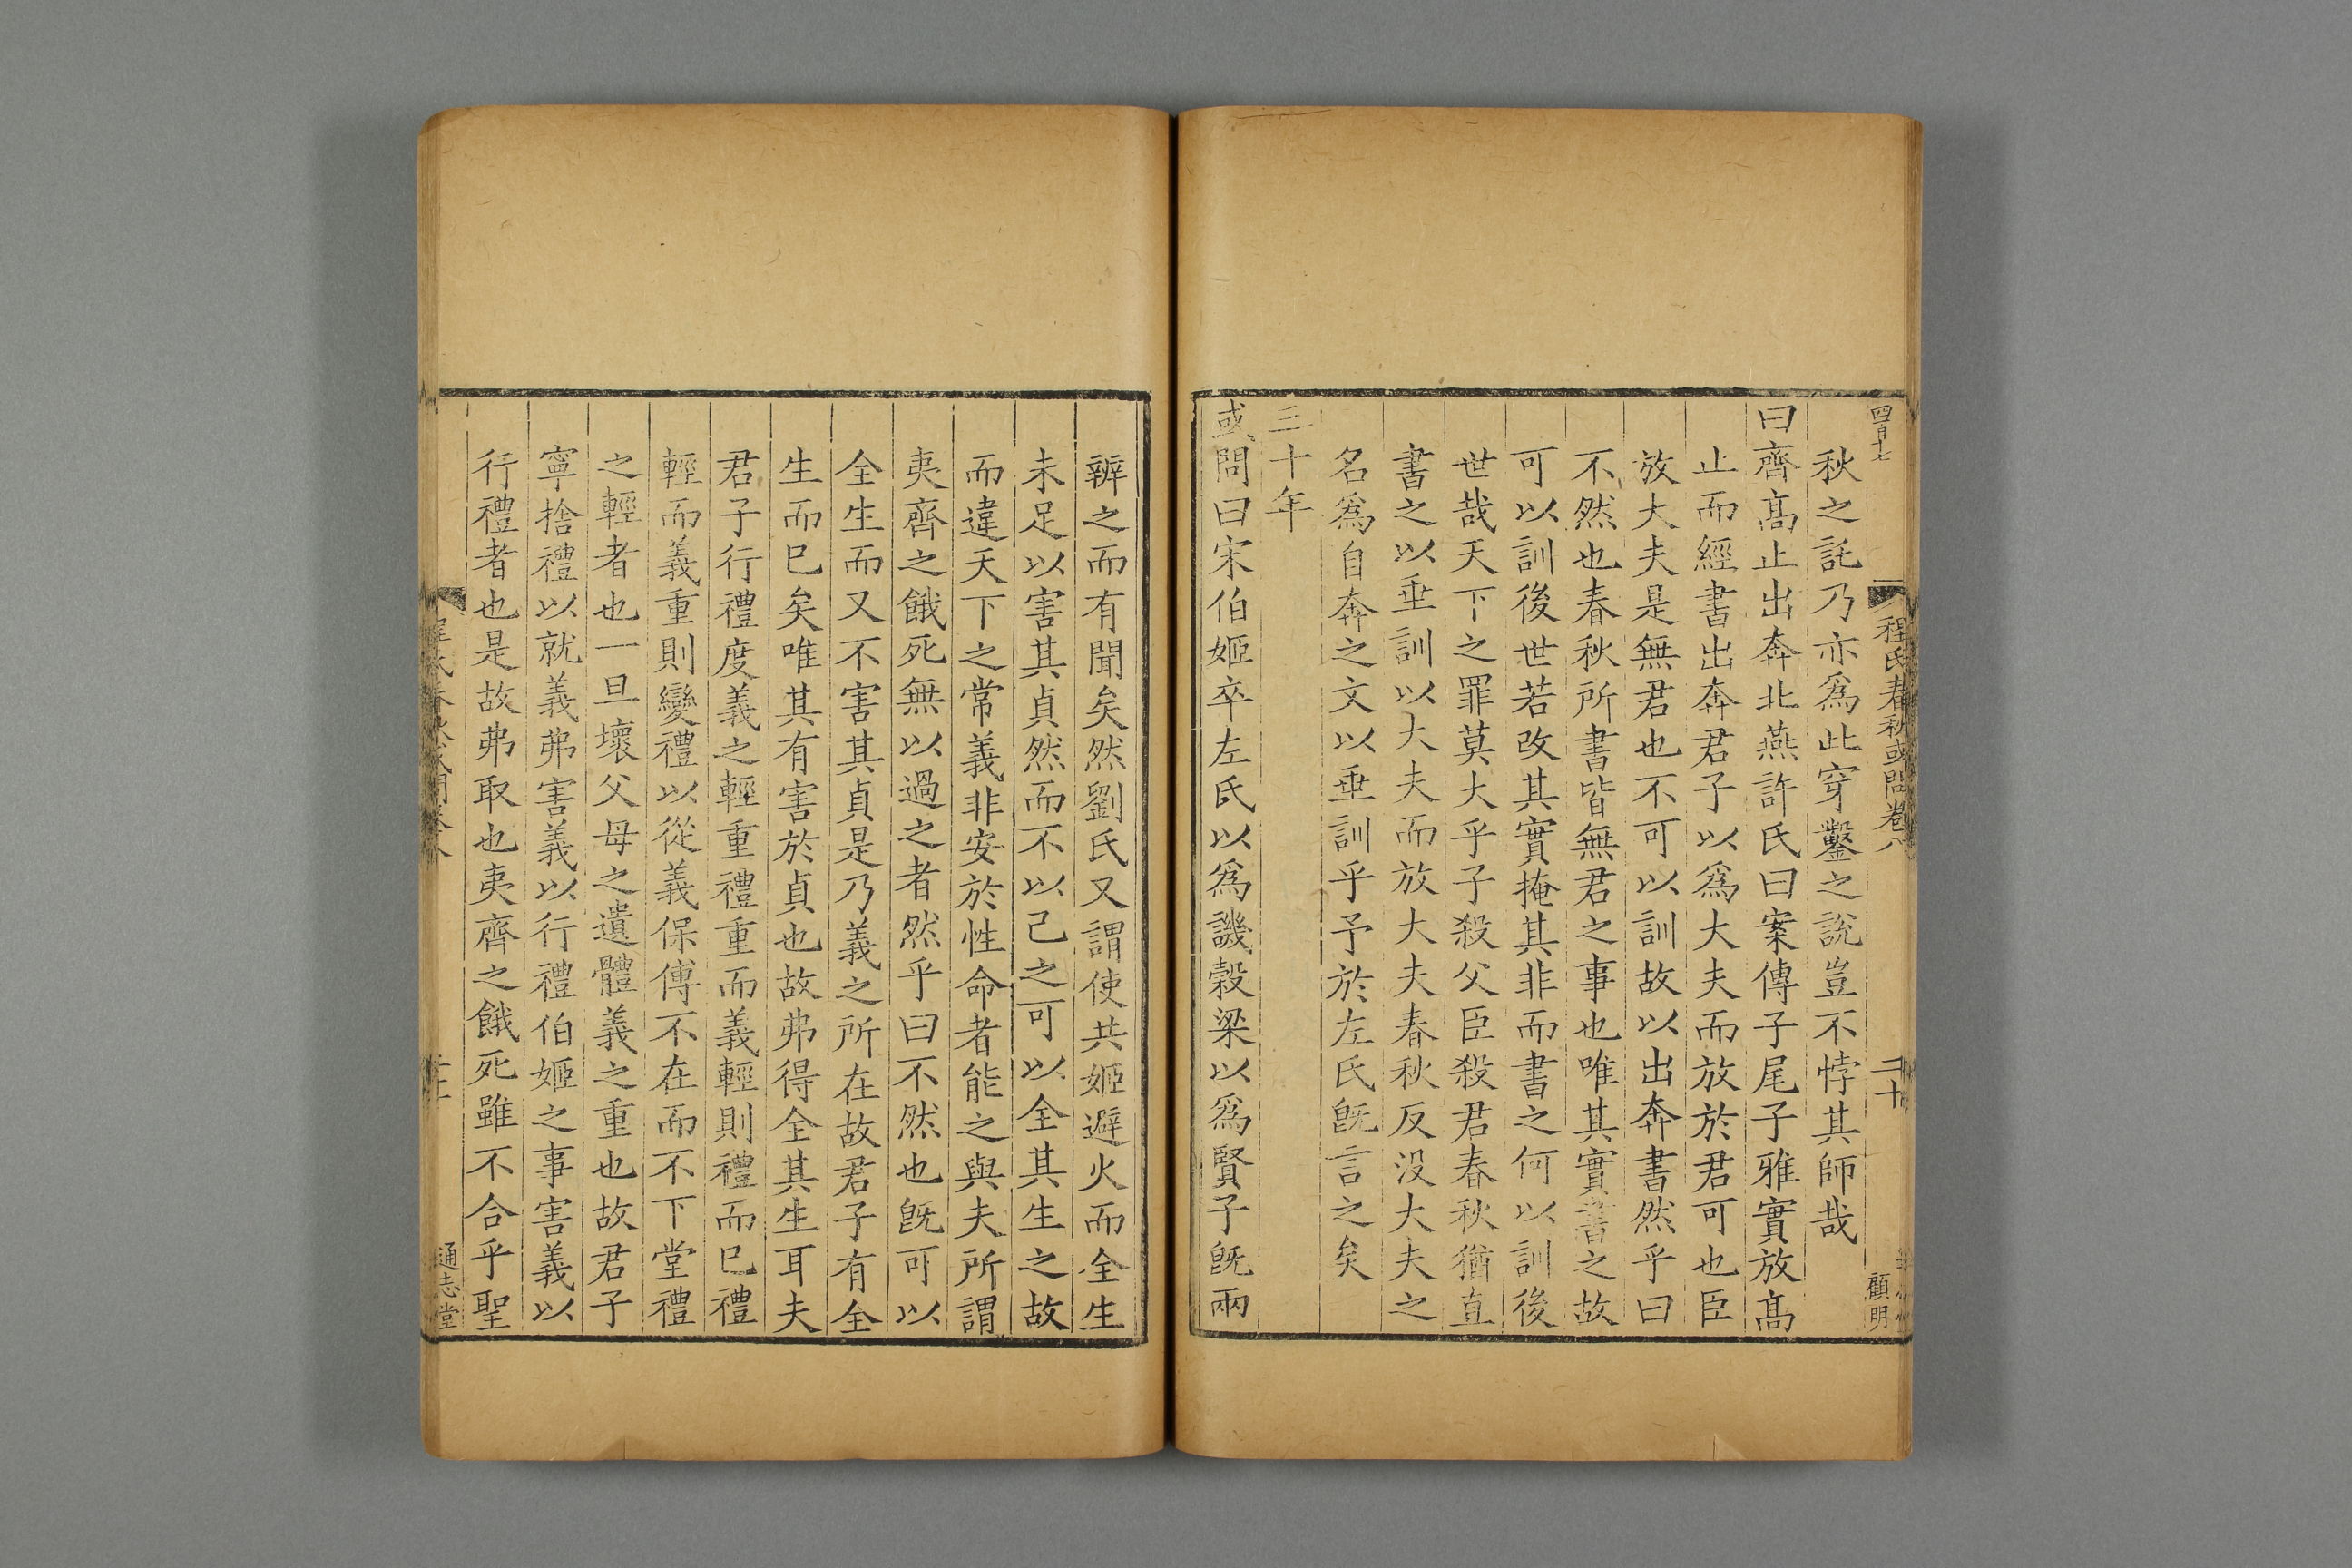 四百十七
程氏春秋或問卷八
二十
顧明
秋之託乃亦爲此穿鑿之說豈不悖其師哉
曰齊髙止出奔北燕許氏曰案傳子尾子雅實放髙
止而經書出奔君子以爲大夫而放於君可也臣
放大夫是無君也不可以訓故以出奔書然乎曰
不然也春秋所書皆無君之事也唯其實書之故
可以訓後世若改其實掩其非而書之何以訓後
世哉天下之罪莫大乎子殺父臣殺君春秋猶直
書之以垂訓以大夫而放大夫春秋反没大夫之
名爲自奔之文以垂訓乎予於左氏旣言之矣
三十年
或問曰宋伯姬卒左氏以爲譏榖梁以爲賢子旣兩
辨之而有聞矣然劉氏又謂使共姬避火而全生
未足以害其貞然而不以己之可以全其生之故
而違天下之常義非安於性命者能之與夫所謂
夷齊之餓死無以過之者然乎曰不然也旣可以
全生而又不害其貞是乃義之所在故君子有全
生而巳矣唯其有害於貞也故弗得全其生耳夫
君子行禮度義之輕重禮重而義輕則禮而巳禮
輕而義重則變禮以從義保傅不在而不下堂禮
之輕者也一旦壞父母之遺體義之重也故君子
寧捨禮以就義弗害義以行禮伯姬之事害義以
行禮者也是故弗取也夷齊之餓死雖不合乎聖
通志堂